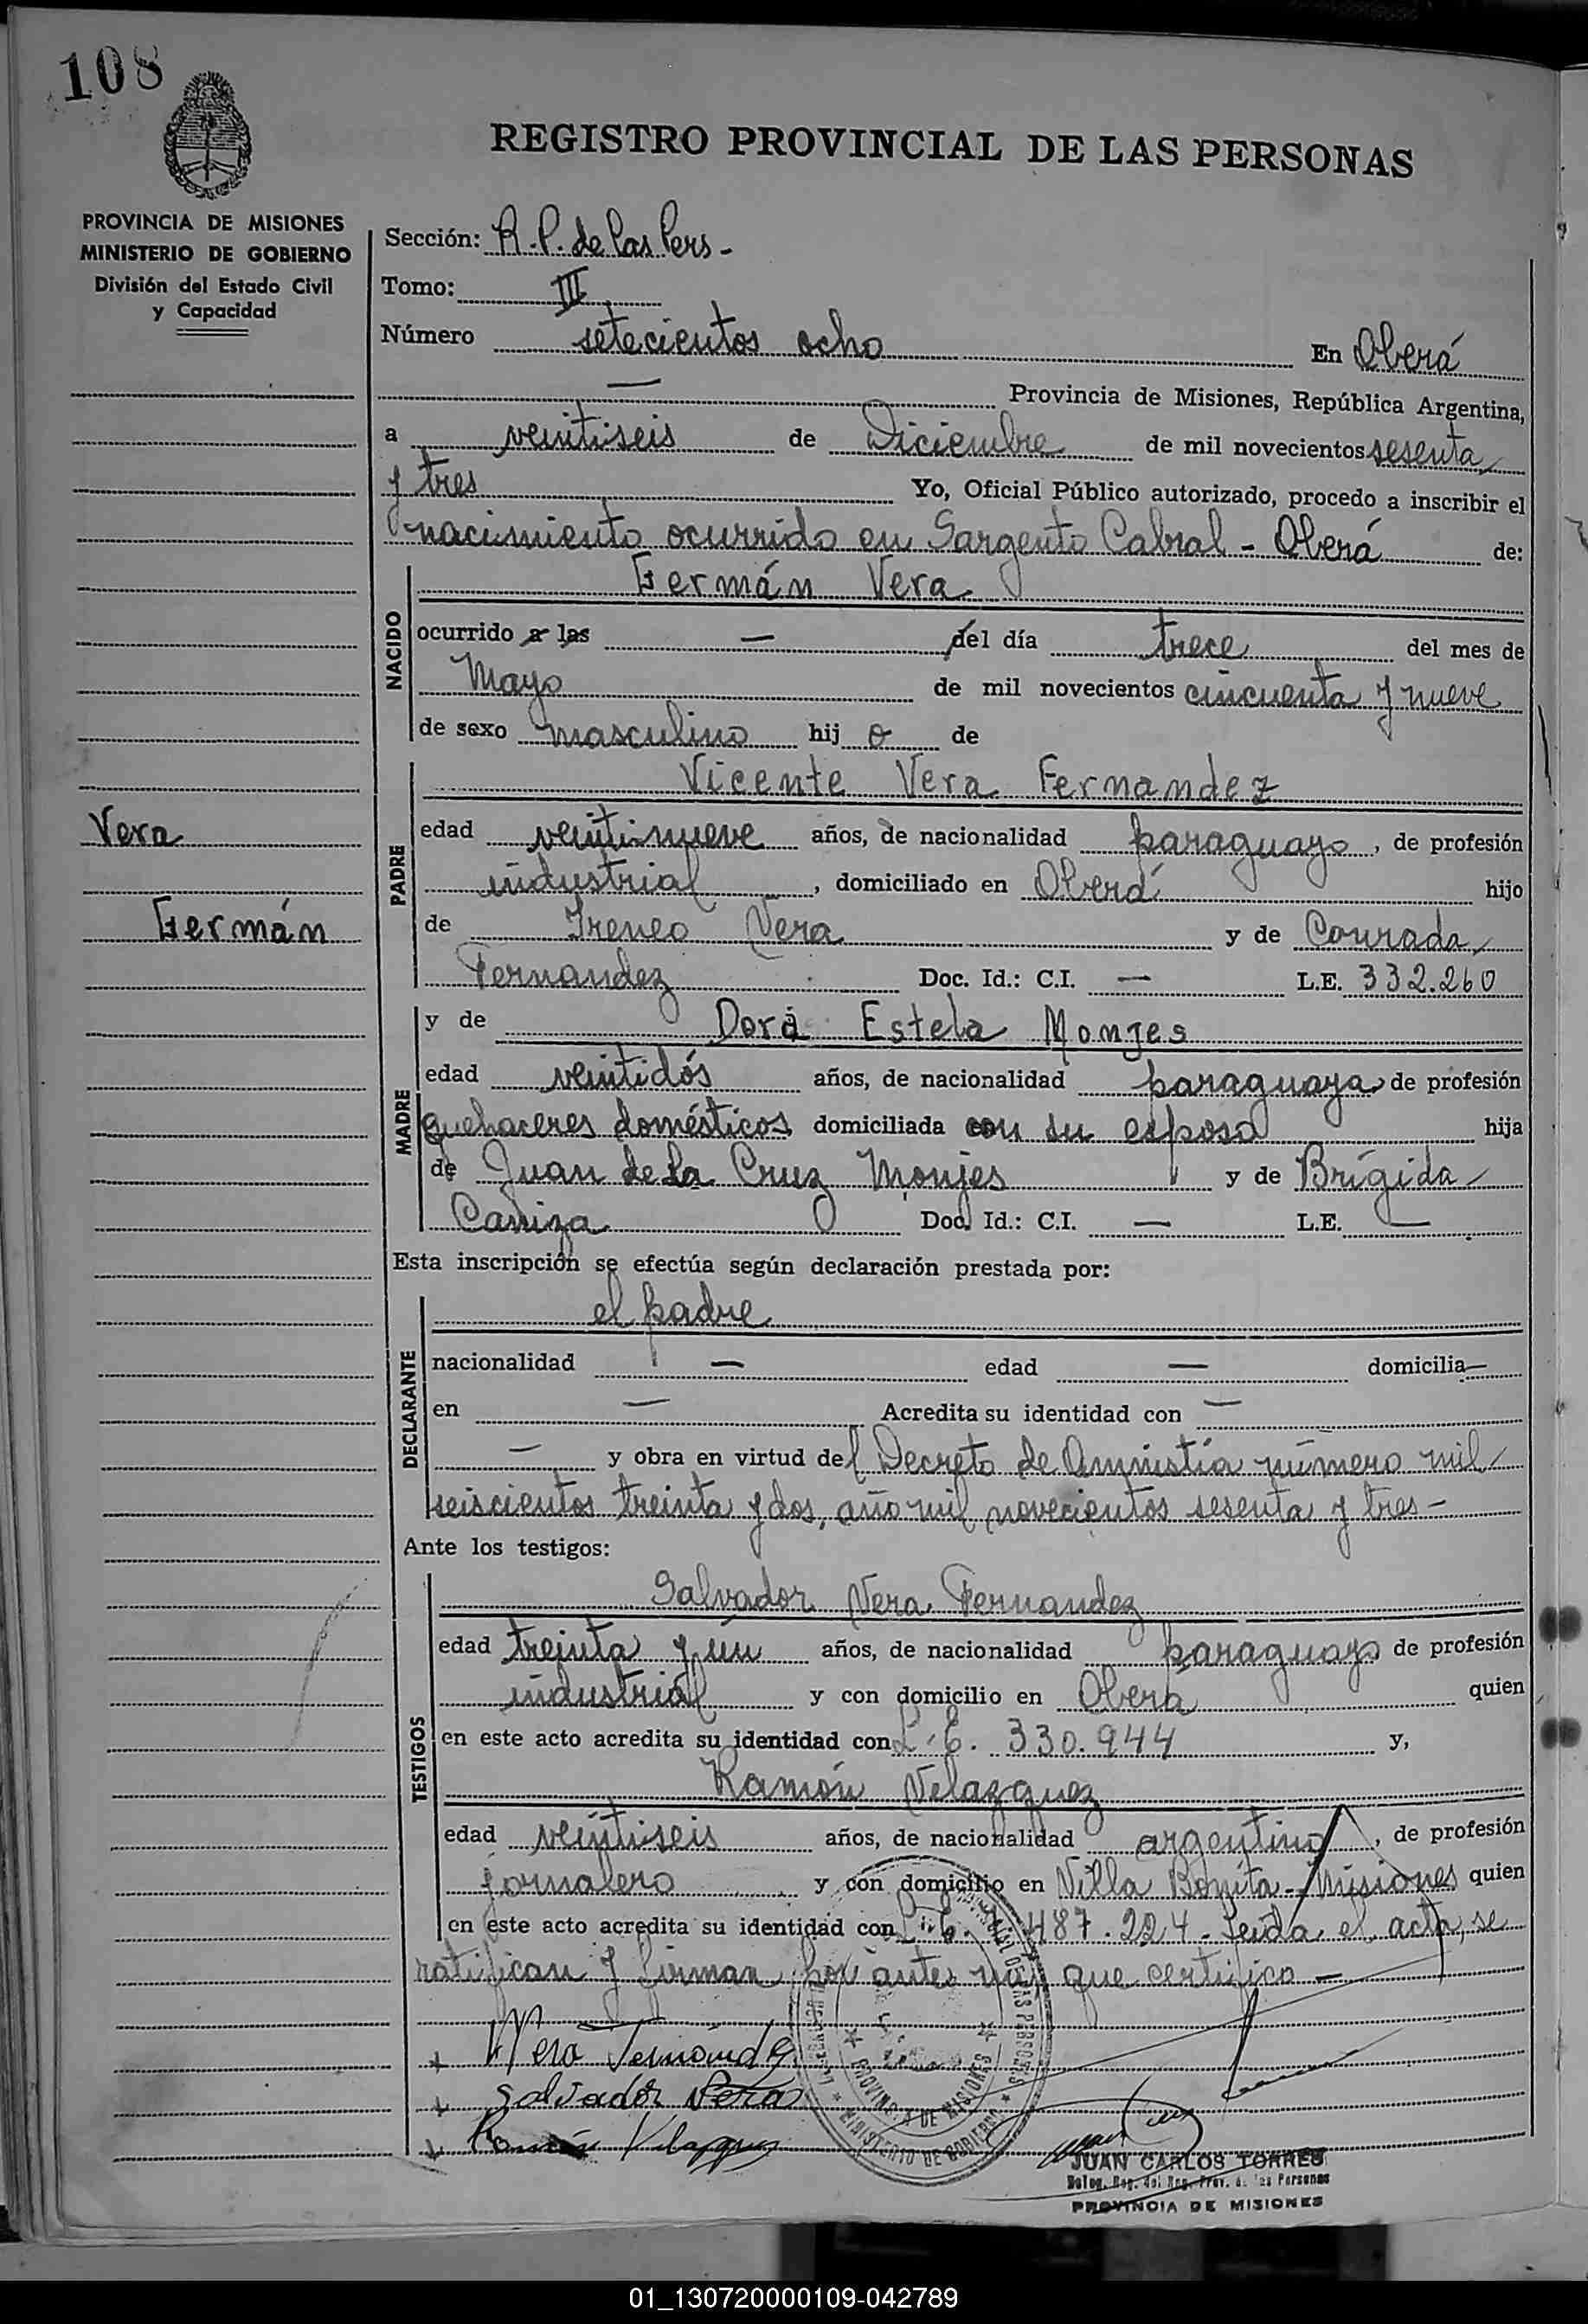 108
REGISTRO PROVINCIAL DE LAS PERSONAS
PROVINCIA DE MISIONES
MINISTERIO DE GOBIERNO
División del Estado Civil
y Capacidad
Sección: R.P. de las Pers-
Tomo: III
Número setecientos ocho En Oberá
— Provincia de Misiones, República Argentina,
a veintiseis de Diciembre de mil novecientos sesenta
y tres Yo, Oficial Público autorizado, procedo a inscribir el
nacimiento ocurrido en Sargento Cabral - Oberá de:
NACIDO
Germán Vera
ocurrido a las — del día trece del mes de
Mayo de mil novecientos cincuenta y nueve
de sexo masculino hij o de
PADRE
Vicente Vera Fernandez
Vera
edad veintinueve años, de nacionalidad paraguayo, de profesión
industrial, domiciliado en Oberá hijo
Germán
de Ireneo Vera y de Conrada
Fernandez Doc. Id.: C.I. — L.E. 332.260
MADRE
y de Dora Estela Monges
edad veintidós años, de nacionalidad paraguaya de profesión
quehaceres domésticos domiciliada con su esposo hija
de Juan de la Cruz Monjes y de Brígida
Doc. Id.: C.I. — L.E. —
Esta inscripción se efectúa según declaración prestada por:
DECLARANTE
el padre
nacionalidad — edad — domicilia—
en — Acredita su identidad con —
— y obra en virtud del Decreto de Amnistía número mil
seiscientos treinta y dos, año mil novecientos sesenta y tres -
Ante los testigos:
TESTIGOS
Salvador Vera Fernandez
edad treinta y un años, de nacionalidad paraguayo de profesión
industrial y con domicilio en Oberá quien
en este acto acredita su identidad con L.E. 330.944 y,
Ramón Velazquez
edad veintiseis años, de nacionalidad argentino, de profesión
jornalero y con domicilio en Villa Bonita - Misiones quien
en este acto acredita su identidad con 487.224. Leida el acta, se
ratifican y firman por antes mi que certifico —
Vera Fernández
Salvador Vera
Ramón Velazquez
PROVINCIA DE MISIONES
MINISTERIO DE GOBIERNO
JUAN CARLOS TORRES
Deleg. Reg. del Reg. Prov. de las Personas
PROVINCIA DE MISIONES
01_130720000109-042789